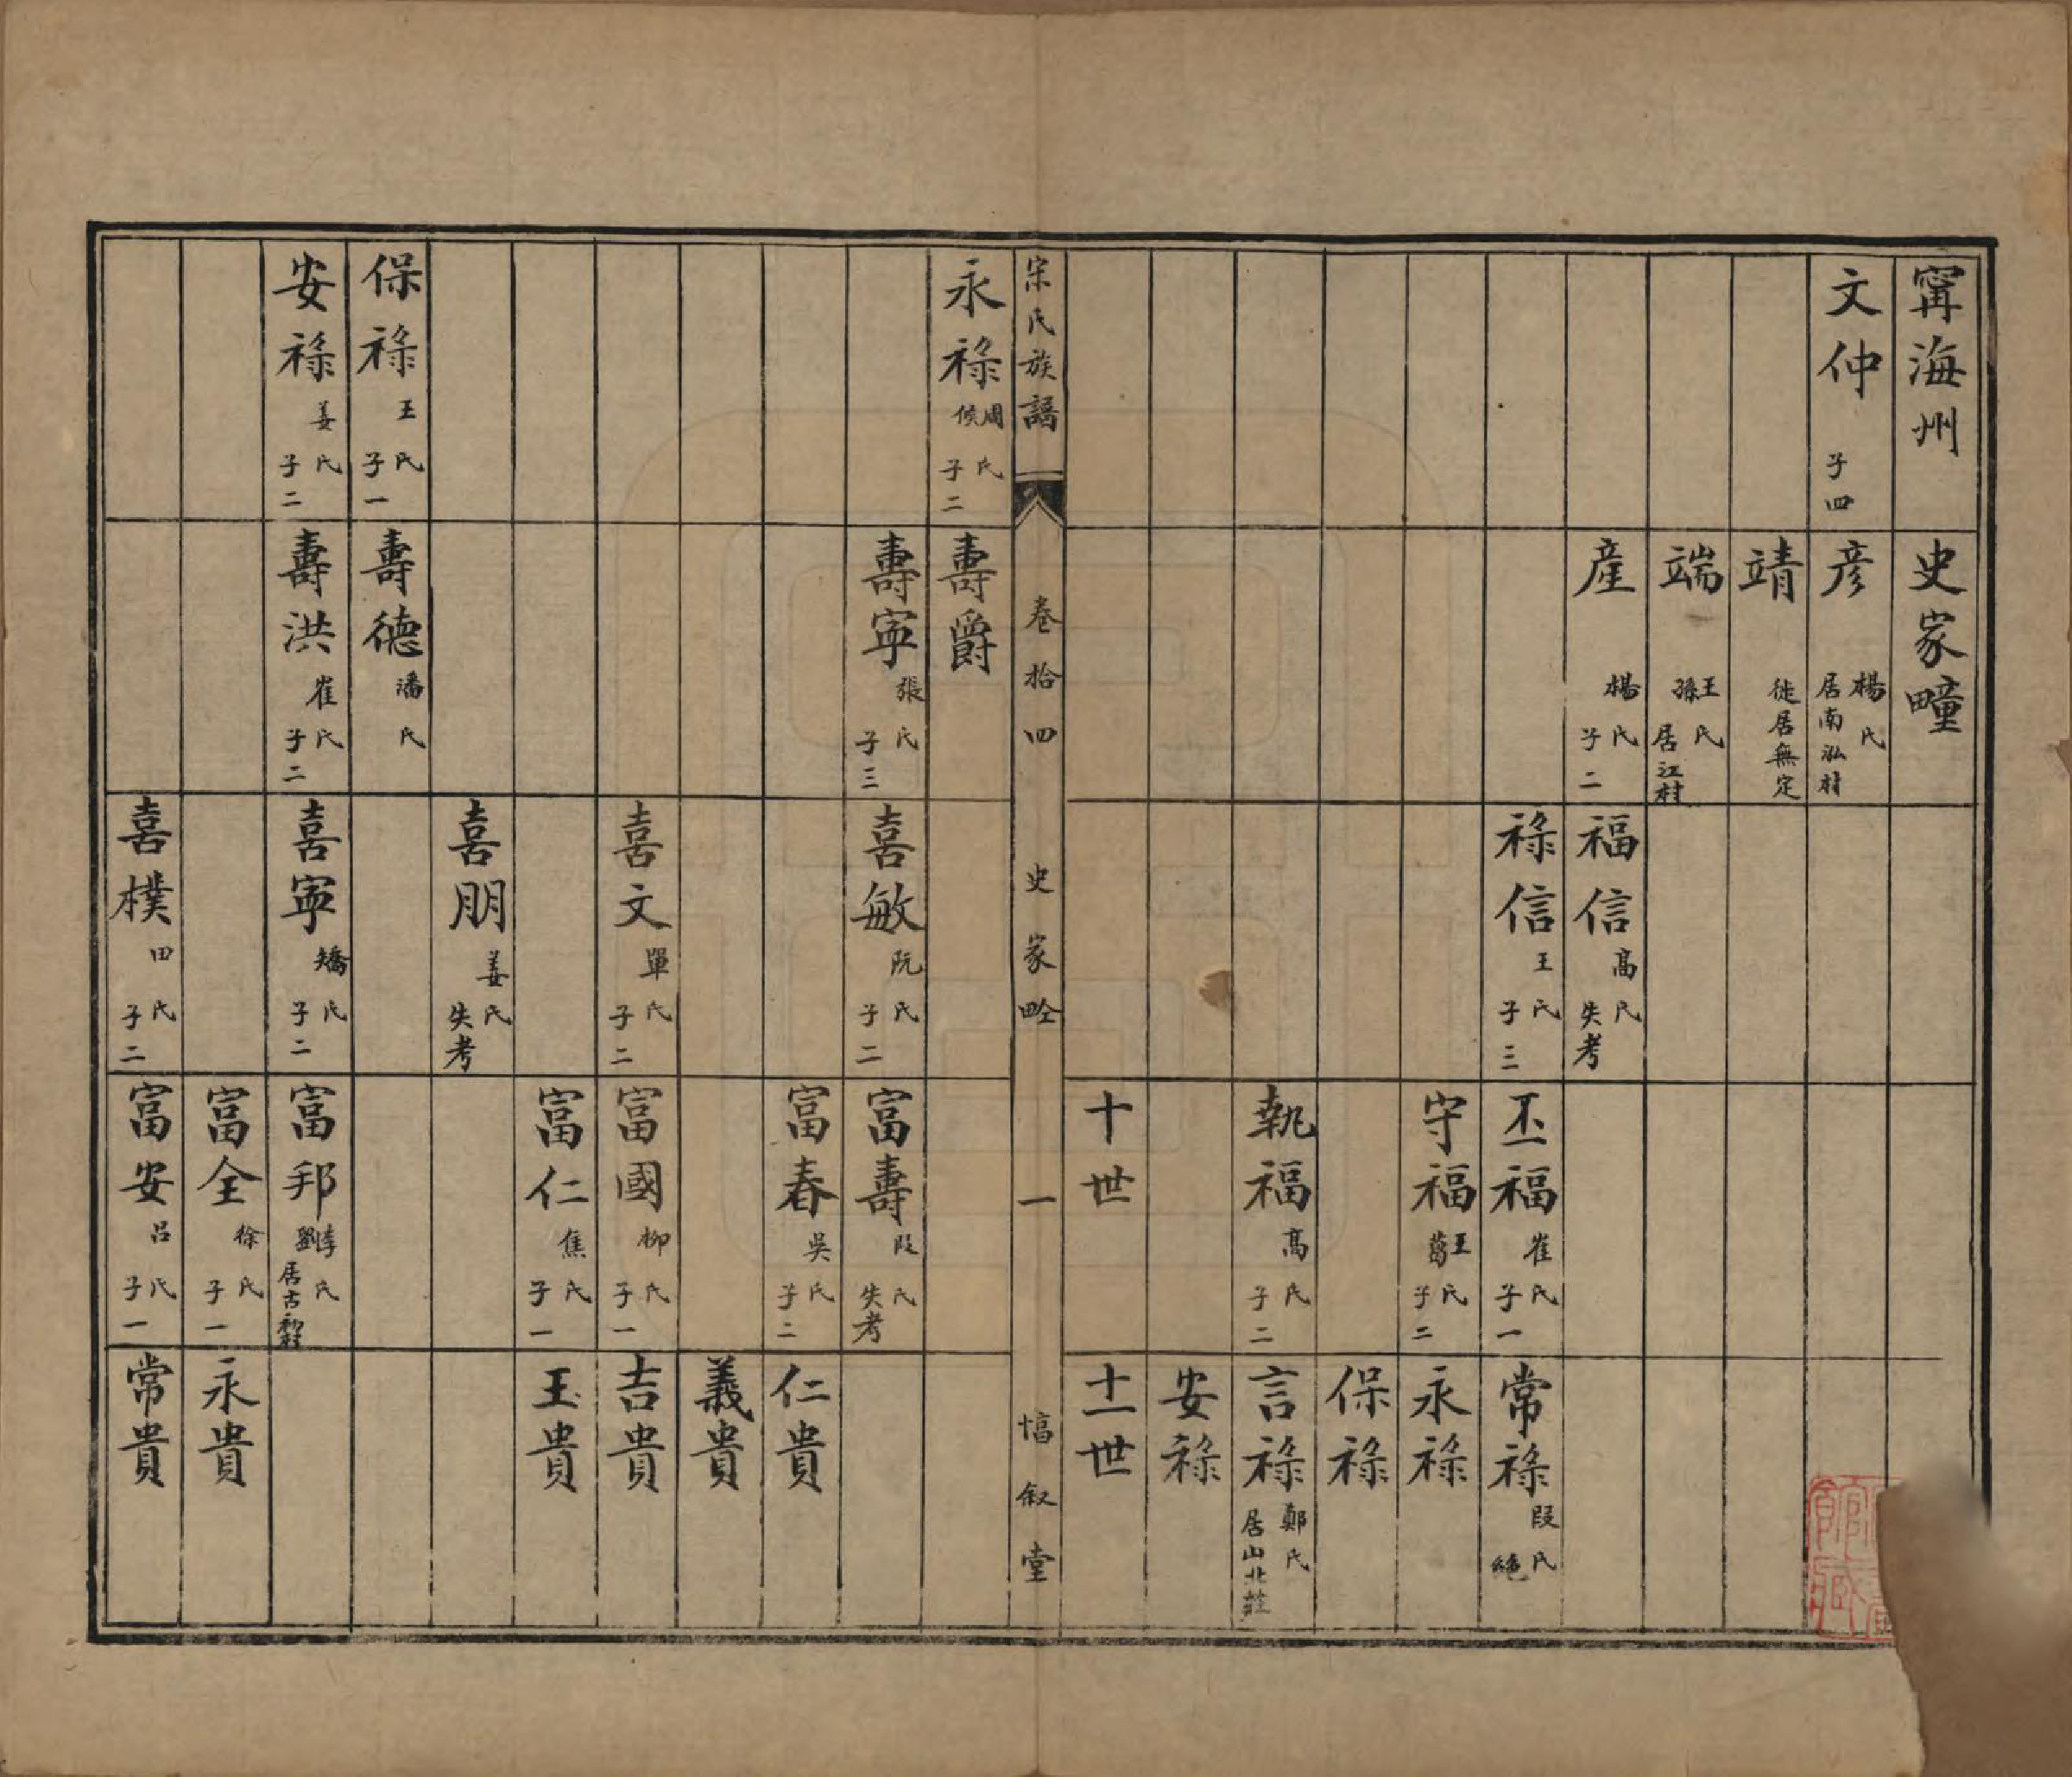 甯海州 史家疃
文仲 子四
彦 楊氏 居南泓村
靖 徙居無定
端 王孫氏 居江村
産 楊氏 子二
福信 高氏 失考
祿信 王氏 子三
丕福 崔氏 子一
常祿 段氏 絶
守福 王葛氏 子二
永祿
保祿
執福 高氏 子二
言祿 鄭氏 居山北莊
安祿
十世 十一世
宋氏族譜 卷拾四 史家疃 一 愊叙堂
永祿 周侯氏 子二
壽爵
壽寜 張氏 子三
喜敏 阮氏 子二
富壽 段氏 失考
富春 吳氏 子二
仁貴
義貴
喜文 單氏 子二
富國 柳氏 子一
吉貴
富仁 焦氏 子一
玉貴
喜朋 姜氏 失考
保祿 王氏 子一
壽德 潘氏
安祿 姜氏 子二
壽洪 崔氏 子二
喜寜 矯氏 子二
富邦 李劉氏 居古初村
富全 徐氏 子一
永貴
喜樸 田氏 子二
富安 呂氏 子一
常貴